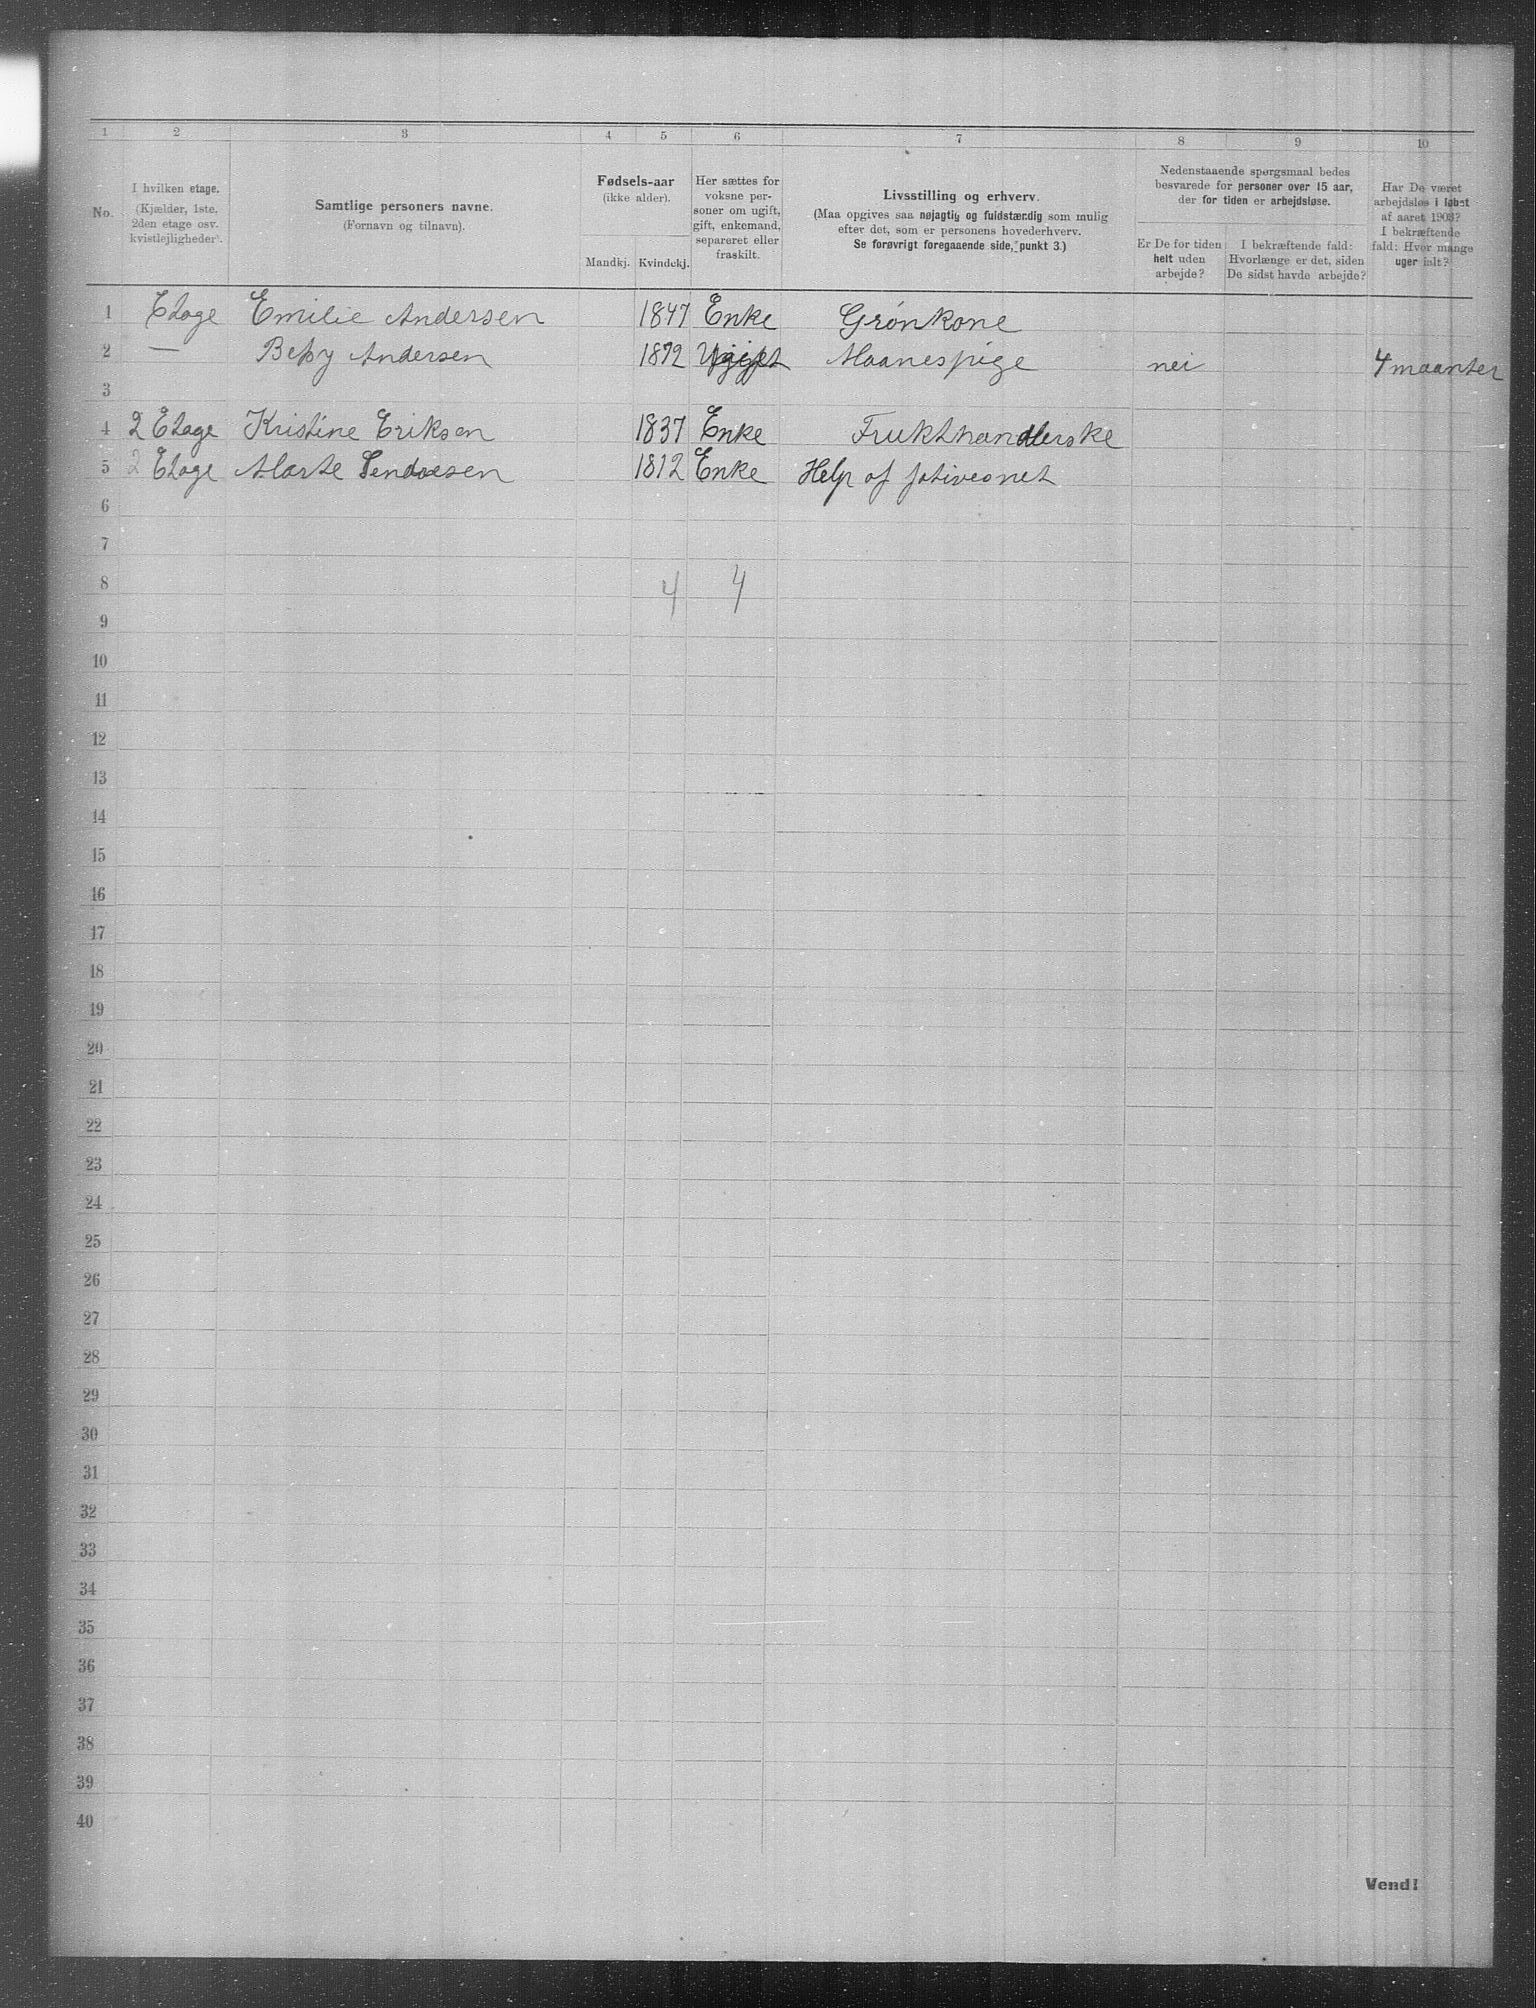 1 2 3 4 5 6 7 8 9 10
No.
I hvilken etage.
(Kjælder, 1ste,
2den etage osv.
kvistlejligheder).
Samtlige personers navne.
(Fornavn og tilnavn).
Fødsels-aar
(ikke alder).
Mandkj. Kvindekj.
Her sættes for
voksne per-
soner om ugift,
gift, enkemand,
separeret eller
fraskilt.
Livsstilling og erhverv.
(Maa opgives saa nøjagtig og fuldstændig som mulig
efter det, som er personens hovederhverv.
Se forøvrigt foregaaende side, punkt 3.)
Nedenstaaende spørgsmaal bedes
besvarede for personer over 15 aar,
der for tiden er arbejdsløse.
Er De for tiden
helt uden
arbejde?
I bekræftende fald:
Hvorlænge er det, siden
De sidst havde arbejde?
Har De været
arbejdsløs i løbet
af aaret 1903?
I bekræftende
fald: Hvor mange
uger ialt?
1 Etage Emilie Andersen 1847 Enke Grønkone
2 — Andersen 1872 Ugift Maanespige nei 4 maanter
3
4 2 Etage Kristine Eriksen 1837 Enke Frukthandlerske
5 2 Etage Marte 1812 Enke Help af
6
7
8 4 4
9
10
11
12
13
14
15
16
17
18
19
20
21
22
23
24
25
26
27
28
29
30
31
32
33
34
35
36
37
38
39
40
Vend!